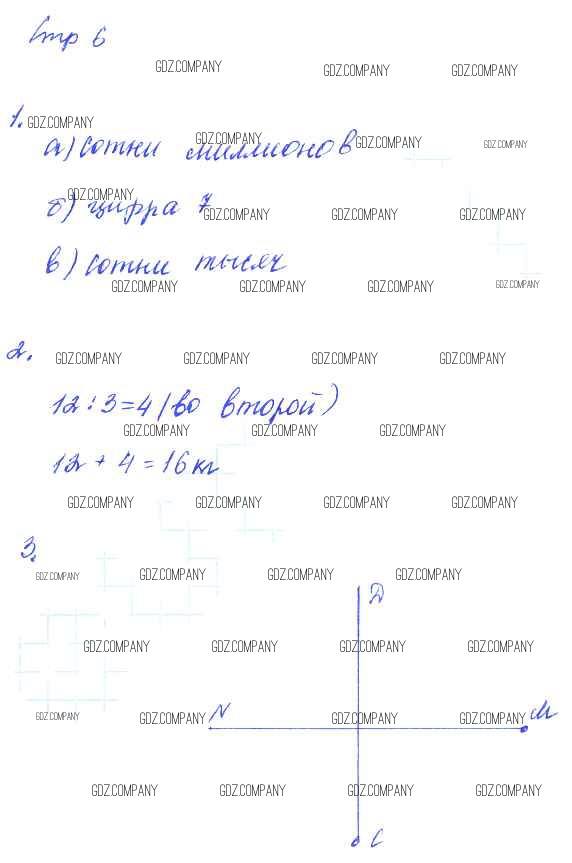 Стр 6
GDZ.COMPANY GDZ.COMPANY GDZ.COMPANY
1. GDZ.COMPANY
а) сотни миллионов
GDZ.COMPANY GDZ.COMPANY GDZ.COMPANY
GDZ.COMPANY
б) цифра 7
GDZ.COMPANY GDZ.COMPANY GDZ.COMPANY
в) сотни тысяч
GDZ.COMPANY GDZ.COMPANY GDZ.COMPANY GDZ.COMPANY
2. GDZ.COMPANY GDZ.COMPANY GDZ.COMPANY GDZ.COMPANY
12 : 3 = 4 (во второй)
GDZ.COMPANY GDZ.COMPANY GDZ.COMPANY
12 + 4 = 16 кг
GDZ.COMPANY GDZ.COMPANY GDZ.COMPANY GDZ.COMPANY
3.
GDZ.COMPANY GDZ.COMPANY GDZ.COMPANY GDZ.COMPANY
D
GDZ.COMPANY GDZ.COMPANY GDZ.COMPANY GDZ.COMPANY
GDZ.COMPANY GDZ.COMPANY N GDZ.COMPANY GDZ.COMPANY M
GDZ.COMPANY GDZ.COMPANY GDZ.COMPANY GDZ.COMPANY
C